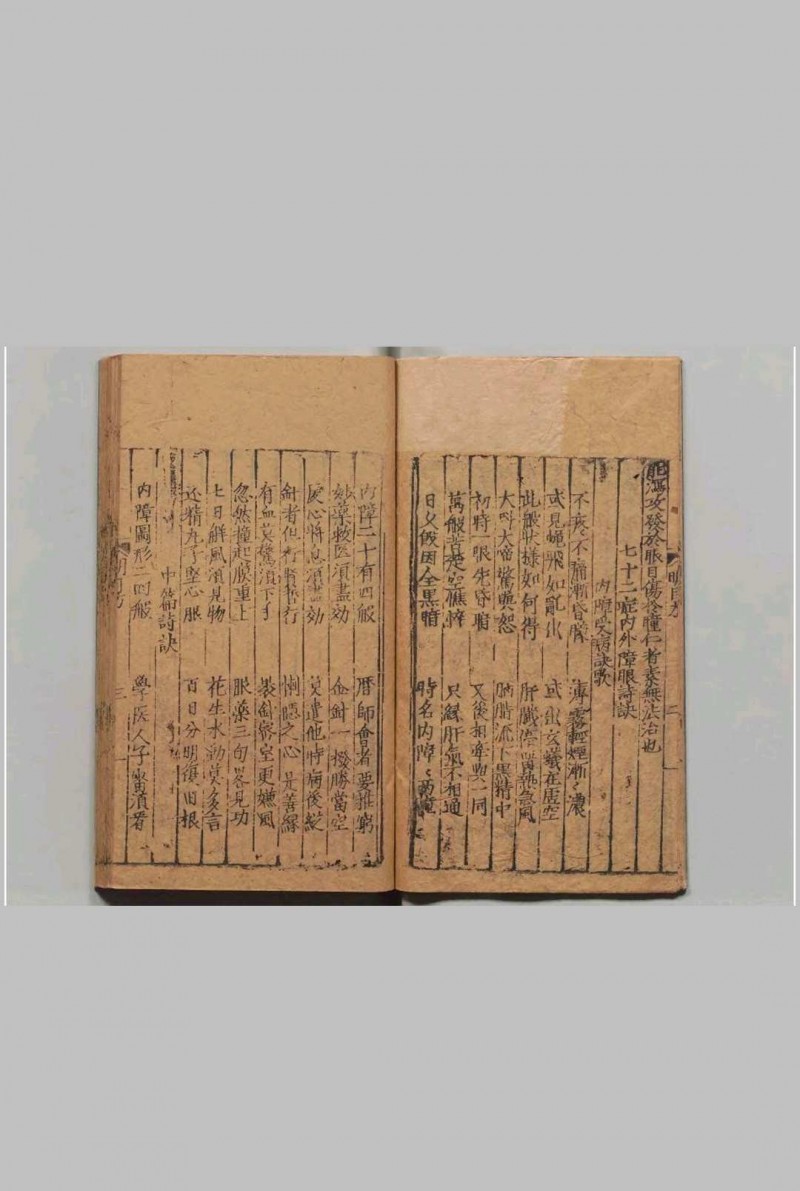 能洱攻發於眼目傷於瞳仁者素無法治也
七十二症內外障眼詩訣
內障受病訣歌
不疼不痛漸昏朦 薄霧輕煙漸々濃
或見蠅飛如亂出 或出玄蟻在虛空
此般狀樣如何得 肝臟停留熱急風
大叫大啼驚與怒 腦脂流下黑精中
初時一眼先昏暗 又後相牽與一同
萬般苦楚空憔悴 只緣肝氣不相通
日久飯因全黑暗 時名內障々
明目方
二
內障二十有四般 曆師會者要推窮
妙藥救医須盡効 金針一撥勝當空
戾心將息須盡効 莫遣他時病後縱
針者但行賢哲行 惻隱之心是善緣
有血莫驚須下手 裝針宻室更嫌風
忽然撞起膜重上 服藥三旬畧見功
七日觧風須見物 花生水動莫多言
还精九子堅心服 百日分明復旧根
中篇詩訣
內障圖形二四般 學医人子審須看
三